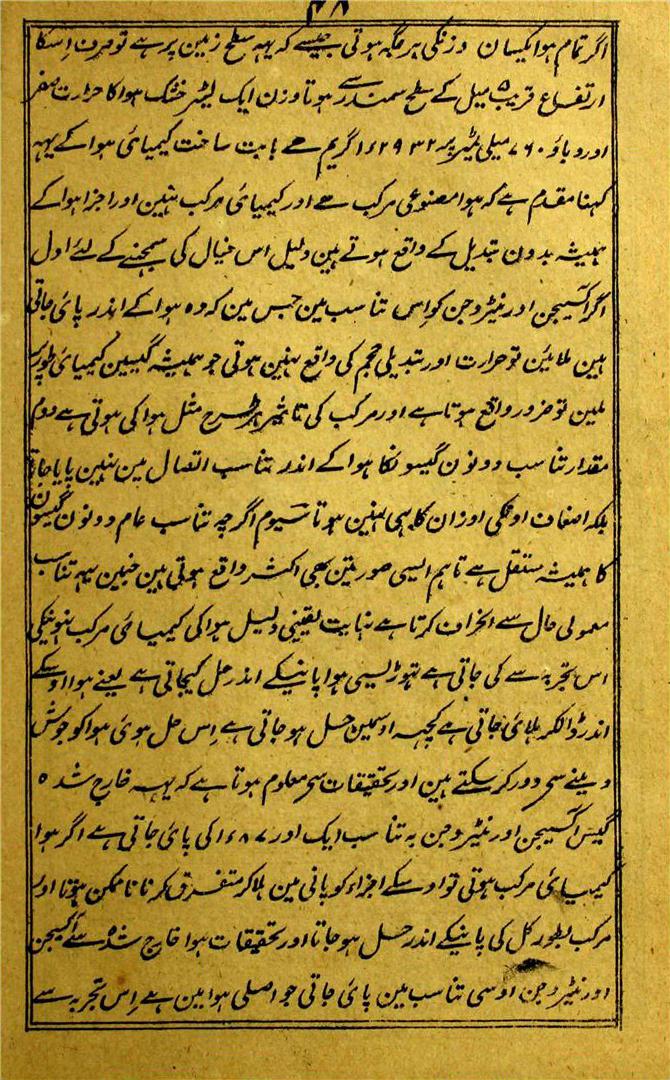 ۳۸
اگر تمام ہوا یکسان وزنکی ہر جگہ ہوتی جیسے کہ یہہ سطح زمین پر ہے تو صرف اسکا
ارتفاع قریب ۵ میل کے سطح سمندر سے ہوتا وزن ایک لیٹر خشک ہوا کا حرارت صفر
اور دباؤ ۷۶۰ میلی میٹر پر ۱٫۲۹۳۲ گریم ہے بابت ساخت کیمیائی ہوا کے یہہ
کہنا مقدم ہے کہ ہوا مصنوعی مرکب ہے اور کیمیائی مرکب نہین اور اجزا ہوا کے
ہمیشہ بدون تبدیل کے واقع ہوتے ہین دلیل اس خیال کی سمجہنے کے لئے اول
اگر اکسیجن اور نیٹروجن کو اس تناسب مین جس مین کہ وہ ہوا کے اندر پائی جاتی
ہین ملائین تو حرارت اور تبدیلی حجم کی واقع نہین ہوتی جو ہمیشہ گیسین کیمیائی طور پر
ملین تو ضرور واقع ہوتا ہے اور مرکب کی تاثیر ہر طرح مثل ہوا کی ہوتی ہے دوم
مقدار تناسب دونون گیسونکا ہوا کے اندر تناسب اتصال مین نہین پایا جاتا
بلکہ اضعاف اونکی اوزان کا بہی نہین ہوتا سیوم اگرچہ تناسب عام دونون گیسون
کا ہمیشہ مستقل ہے تاہم ایسی صورتین بھی اکثر واقع ہوتی ہین جنہین یہہ تناسب
معمولی حال سے انحراف کرتا ہے نہایت یقینی دلیل ہوا کی کیمیائی مرکب نہونیکی
اس تجربہ سے کی جاتی ہے تہوڑیسی ہوا پانیکے اندر حل کیجاتی ہے یعنے ہوا اوسکے
اندر ڈالکر ہلائی جاتی ہے کچہہ اوسمین حل ہو جاتی ہے اس حل ہوئی ہوا کو جوش
دینے سے دور کر سکتے ہین اور تحقیقات سے معلوم ہوتا ہے کہ یہہ خارج شدہ
گیس اکسیجن اور نیٹروجن بہ تناسب ایک اور ۱٫۸۷ کی پائی جاتی ہے اگر ہوا
کیمیائی مرکب ہوتی تو اوسکے اجزاء کو پانی مین ہلا کر متفرق کرنا ناممکن ہوتا اور
مرکب بطور کل کی پانیکے اندر حل ہو جاتا اور تحقیقات ہوا خارج شدہ سے اکسیجن
اور نیٹروجن اوسی تناسب مین پائی جاتی جو اصلی ہوا مین ہے اس تجربہ سے